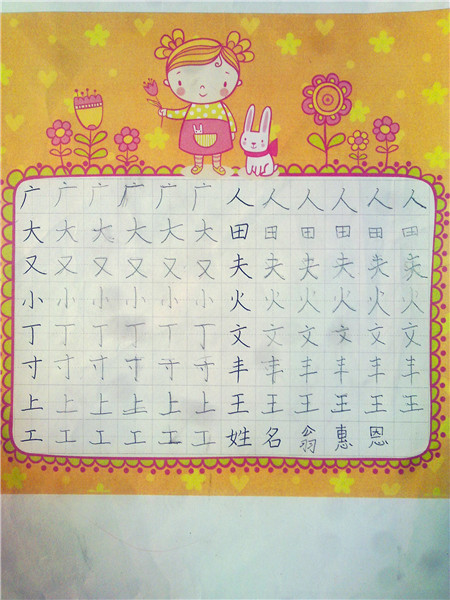 广广广广广广人人人人人人
大大大大大大田田田田田田
又又又又又又夫夫夫夫夫夫
小小小小小小火火火火火火
丁丁丁丁丁丁文文文文文文
寸寸寸寸寸寸丰丰丰丰丰丰
上上上上上上王王王王王王
工工工工工工姓名翁惠恩